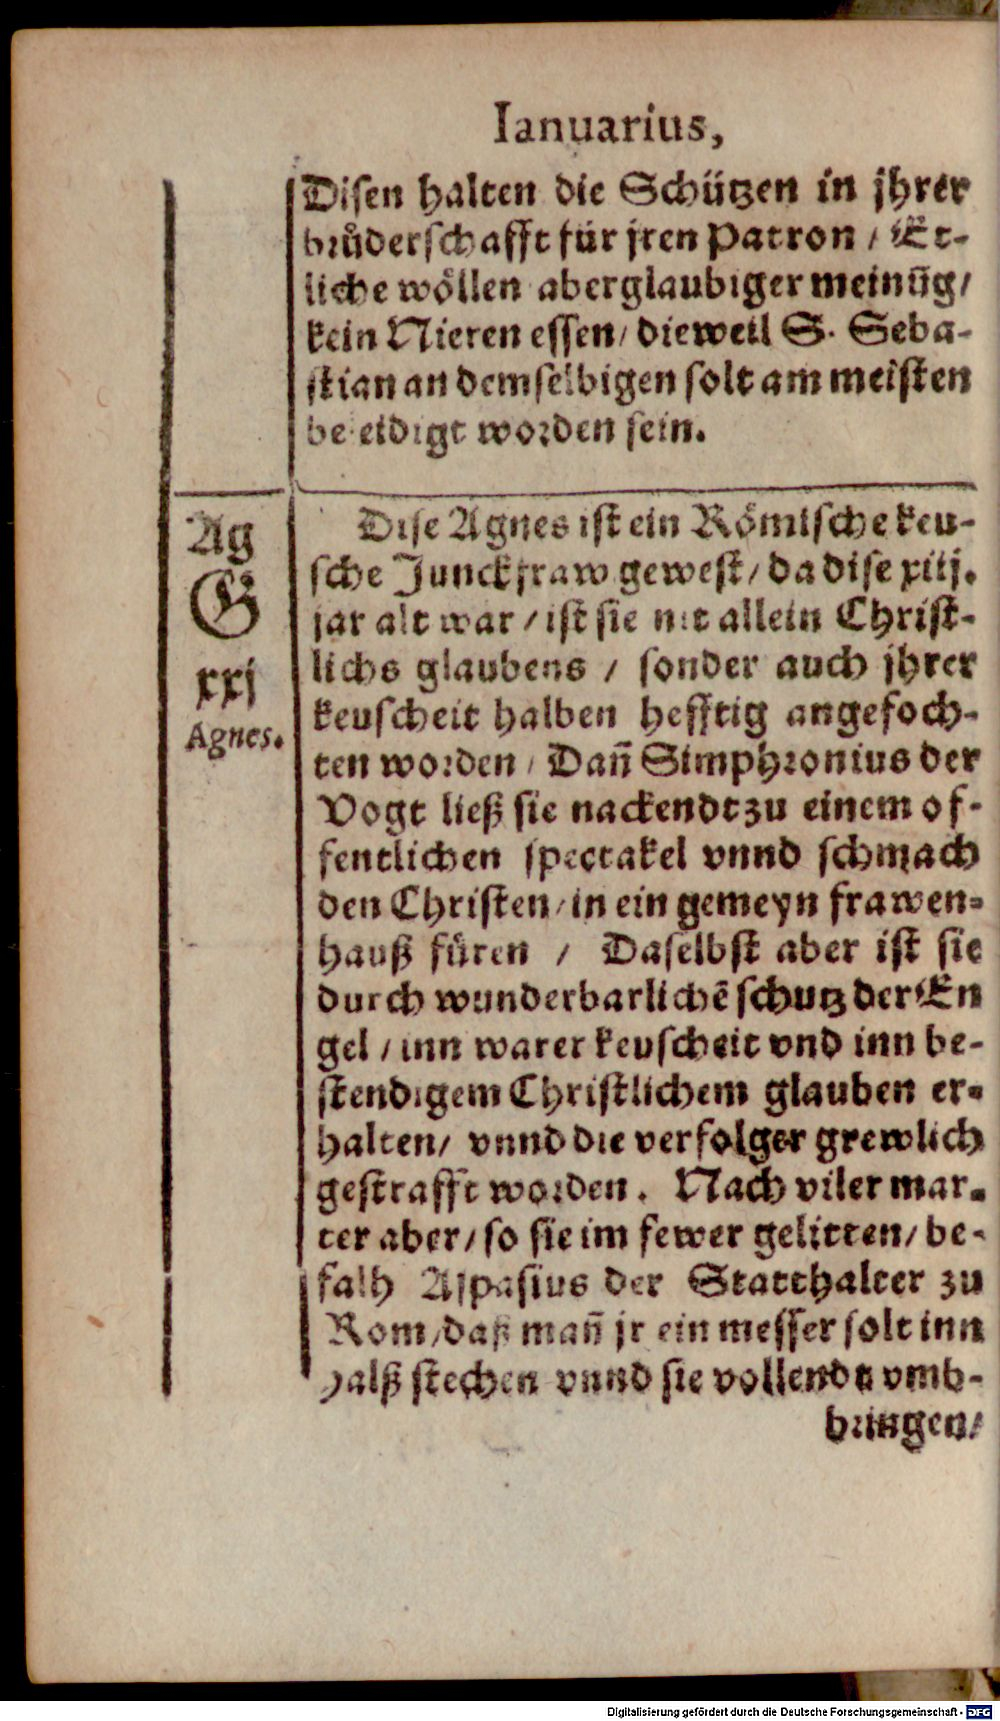 Ianuarius,
Disen halten die Schützen in jhrer
bruͤderschafft für jren Patron / Et-
liche woͤllen aberglaubiger meinūg/
kein Nieren essen/ dieweil S. Seba-
stian an demselbigen solt am meisten
beleidigt worden sein.
Ag
G
xxj
Agnes.
Dise Agnes ist ein Roͤmische keu-
sche Junckfraw gewest/ da dise xiij.
jar alt war / ist sie nit allein Christ-
lichs glaubens / sonder auch jhrer
keuscheit halben hefftig angefoch-
ten worden/ Dañ Simphronius der
Vogt ließ sie nackendt zu einem of-
fentlichen spectakel vnnd schmach
den Christen/ in ein gemeyn frawen-
hauß füren / Daselbst aber ist sie
durch wunderbarlichē schutz der En
gel / inn warer keuscheit vnd inn be-
stendigem Christlichem glauben er-
halten/ vnnd die verfolger grewlich
gestrafft worden. Nach viler mar-
ter aber/ so sie im fewer gelitten/ be-
falh Aspasius der Statthalter zu
Rom/ daß mañ jr ein messer solt inn
halß stechen vnnd sie vollendt vmb-
bringen/
Digitalisierung gefördert durch die Deutsche Forschungsgemeinschaft - DFG